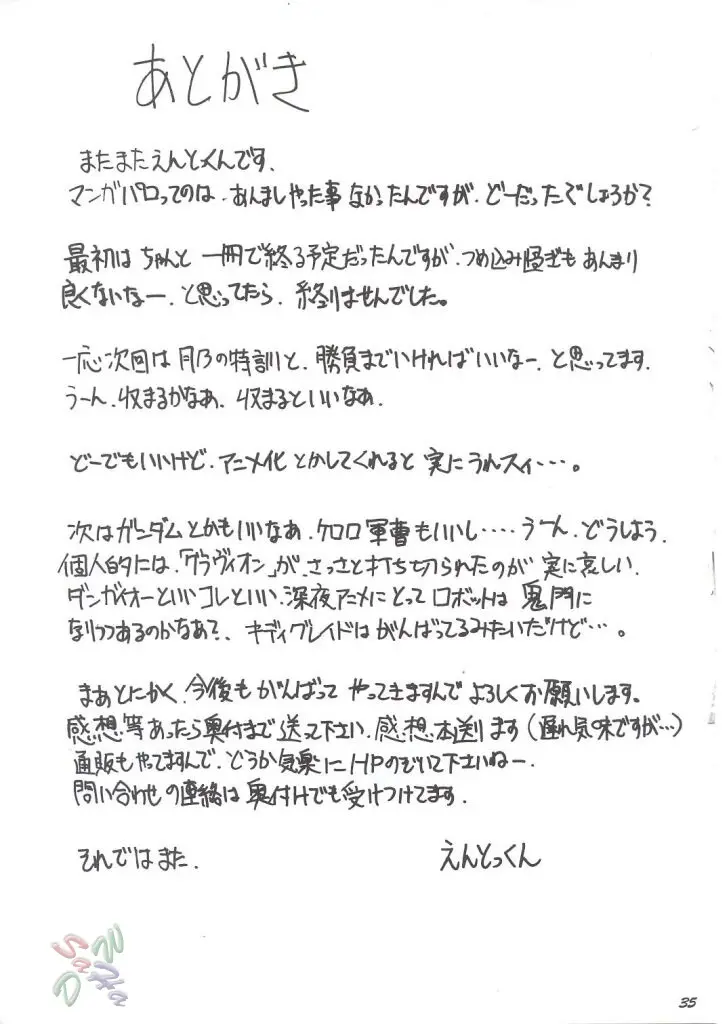 あとがき
またまたえんとっくんです、
マンガパロってのは、あんましやった事なかったんですが、どーだったでしょうか?
最初はちゃんと一冊で終る予定だったんですが、つめ込み過ぎもあんまり
良くないなー、と思ってたら、終りませんでした。
一応次回は月乃の特訓と、勝負までいければいいなー、と思ってます、
うーん、収まるかなあ、収まるといいなあ、
どーでもいいけど、アニメ化とかしてくれると実にうれスィ・・・。
次はガンダムとかもいいなあ、ケロロ軍曹もいいし・・・・うーん、どうしよう、
個人的には、「グラヴィオン」が、さっさと打ち切られたのが実に哀しい、
ダンガイオーといいコレといい、深夜アニメにとってロボットは鬼門に
なりつつあるのかなあ?、キディグレイドはがんばってるみたいだけど・・・。
まあとにかく、今後もがんばってやってきますんでよろしくお願いします。
感想等あったら奥付まで送って下さい、感想本送ります(遅れ気味ですが…)
通販もやってますんで、どうか気楽にHPのぞいて下さいねー
問い合わせの連絡は奥付けでも受けつけてます、
それではまた、
えんとっくん
35